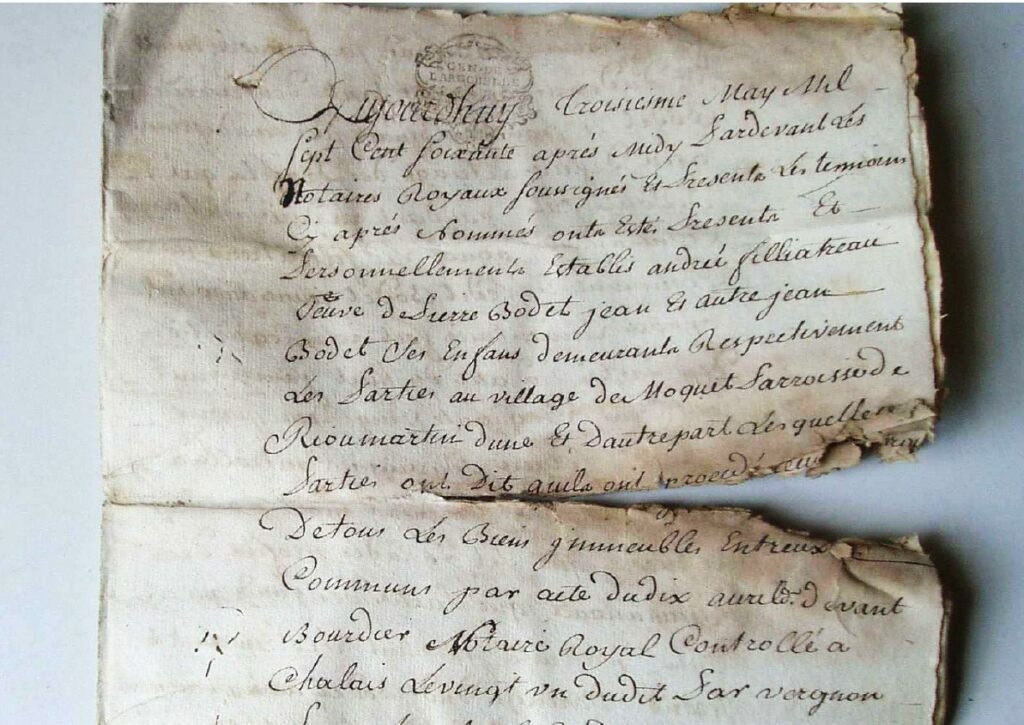 GEN
LAROCHELLE
Aujourdhuy Troisiesme May Mil
Sept Cent Soixante aprés Midy Pardevant Les
Notaires Royaux Soussignés Et Presents Les temoins
Cy aprés Nommés onts Estés Presents Et
Personnellements Establis andrée filliatreau
Veuve de Pierre Bodet jean Et autre jean
Bodet Ses Enfans demeurants Respectivement
Les Parties au village de Moquet Parroisse de
Rioumartin dune Et Dautrepart Lesquelles
Parties ont Dit quils ont procedé
De tous Les Biens ymmeubles Entreux
Communs par acte du dix auril dr devant
Bourdier Notaire Royal Controllé a
Chalais Le vingt un dudit Par vergnon